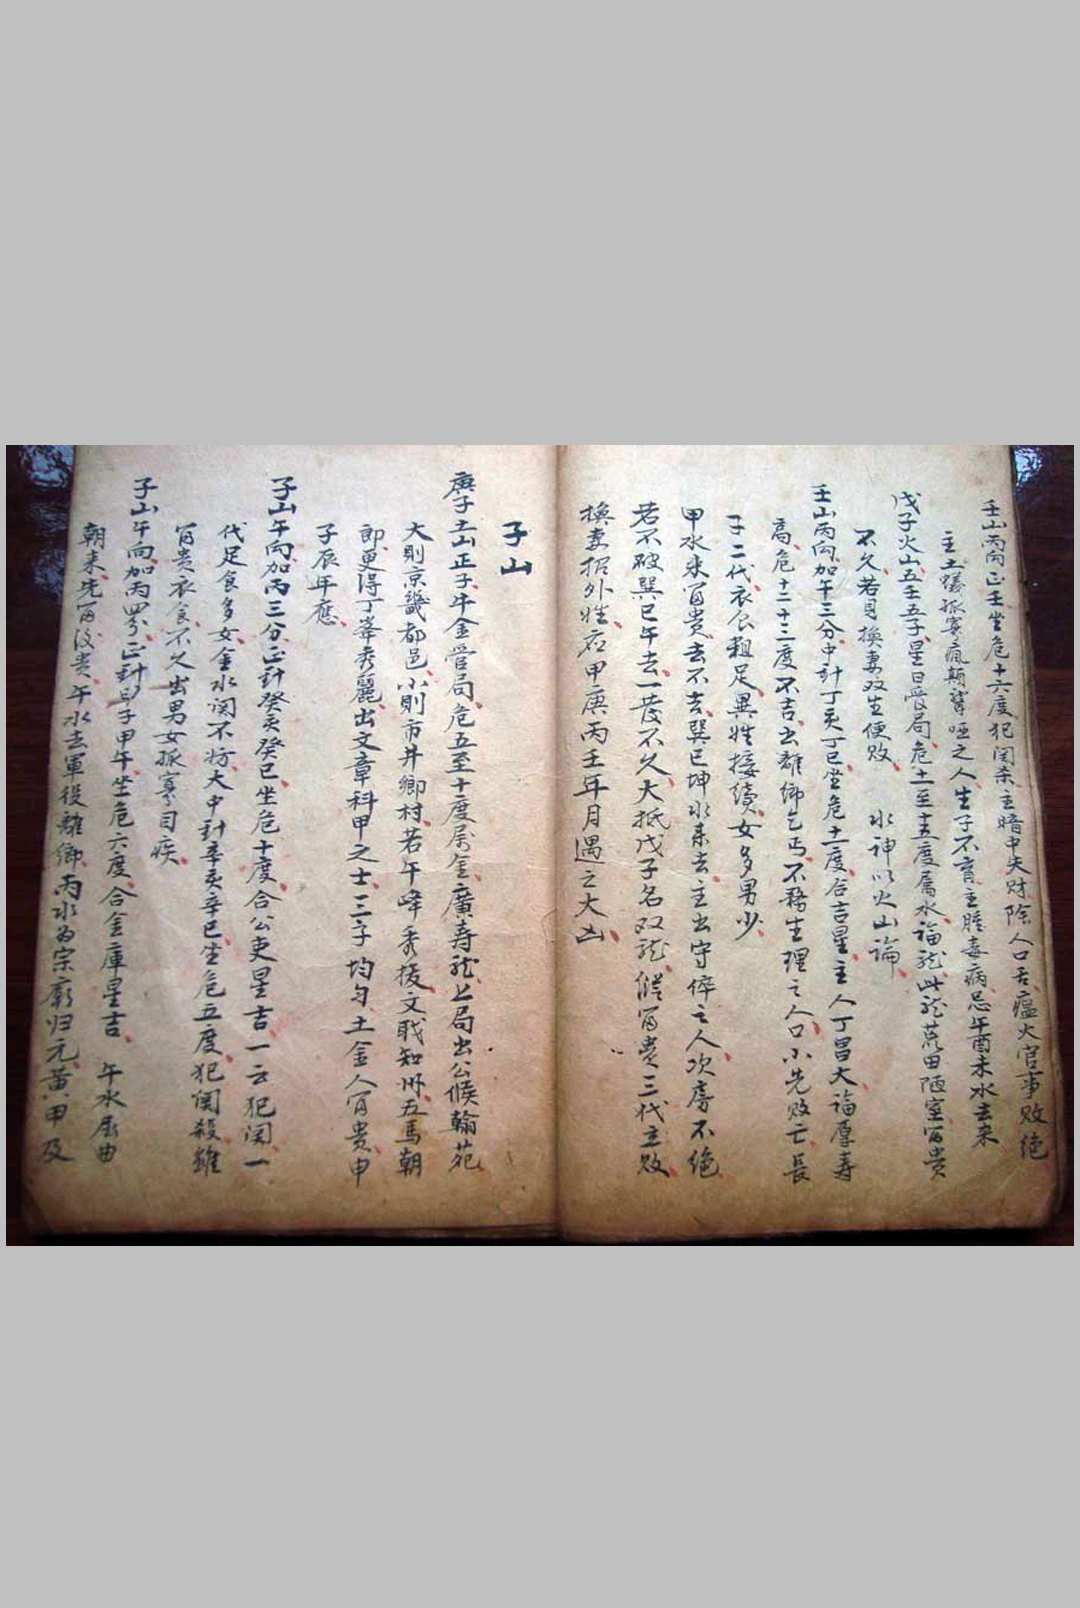 壬山丙向正壬坐危十六度犯関杀主暗中失財陰人口舌瘟火官事敗絶
主土蟻孤寡瘋顛聾啞之人生子不育主腫毒病忌午酉未水去来
戊子火山五壬五子星日營局危十一至十五度屬水福龍此龍荒田陋室富貴
不久若見換妻双生便敗 水神以火山論
壬山丙向加午三分中針丁亥丁巳坐危十一度合吉星主人丁昌大福厚寿
高危十二十三度不吉出離鄉乞丐不務生理之人口小先敗亡長
子二代衣食粗足異姓接續女多男少
甲水来富貴去不去巽巳坤水来去主出守倅之人次房不絶
若不破巽巳午去一發不久大抵戊子名双龍縱富貴三代主敗
換妻招外姓石甲庚丙壬年月遇之大凶
子山
庚子土山正子牛金營局危五至十度属金廣寿龍上局出公候翰苑
大則京畿都邑小則市井鄉村若午峰秀拔文职知州五馬朝
即更得丁峯秀麗出文章科甲之士三子均勻土金人富貴申
子辰年應
子山午向加丙三分正針癸亥癸巳坐危十度合公吏星吉一云犯関一
代足食多女金水関不妨大中針辛亥辛巳坐危五度犯関殺雖
富貴衣食不久出男女孤寡目疾
子山午向加丙四分正針甲子甲午坐危六度合金庫星吉 午水屈曲
朝来先富後貴午水去軍役離鄉丙水为宗廟归元黄甲及